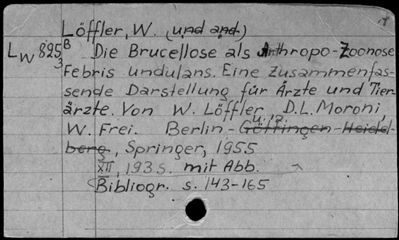 Löffler, W. (und and.)
Lw 825 B 3 Die Brucellose als Anthropo-Zoonose
Febris undulans. Eine zusammenfas-
sende Darstellung für Ärzte und Tier-
ärzte. Von W. Löffler, D.L. Moroni,
W. Frei. Berlin - Göttingen - Heidel- u.a.
berg, Springer, 1955
XII, 193 S. mit Abb.
Bibliogr. s. 143-165